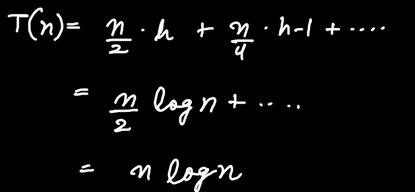 T(n)= n/2 · h + n/4 · h-1 + ....
= n/2 log n + ....
= n log n